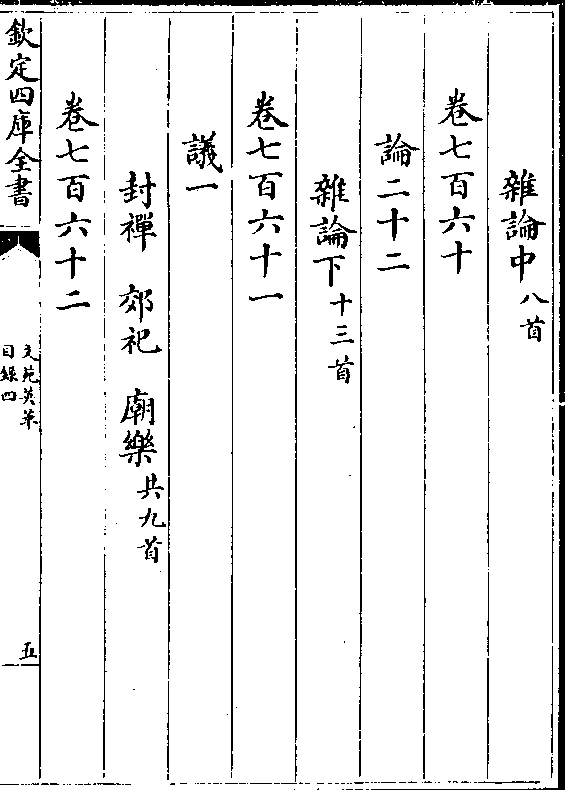 雜論中八首
卷七百六十
論二十二
雜論下十三首
卷七百六十一
議一
封禪 郊祀 廟樂共九首
卷七百六十二
欽定四庫全書
文苑英華
目錄四
五